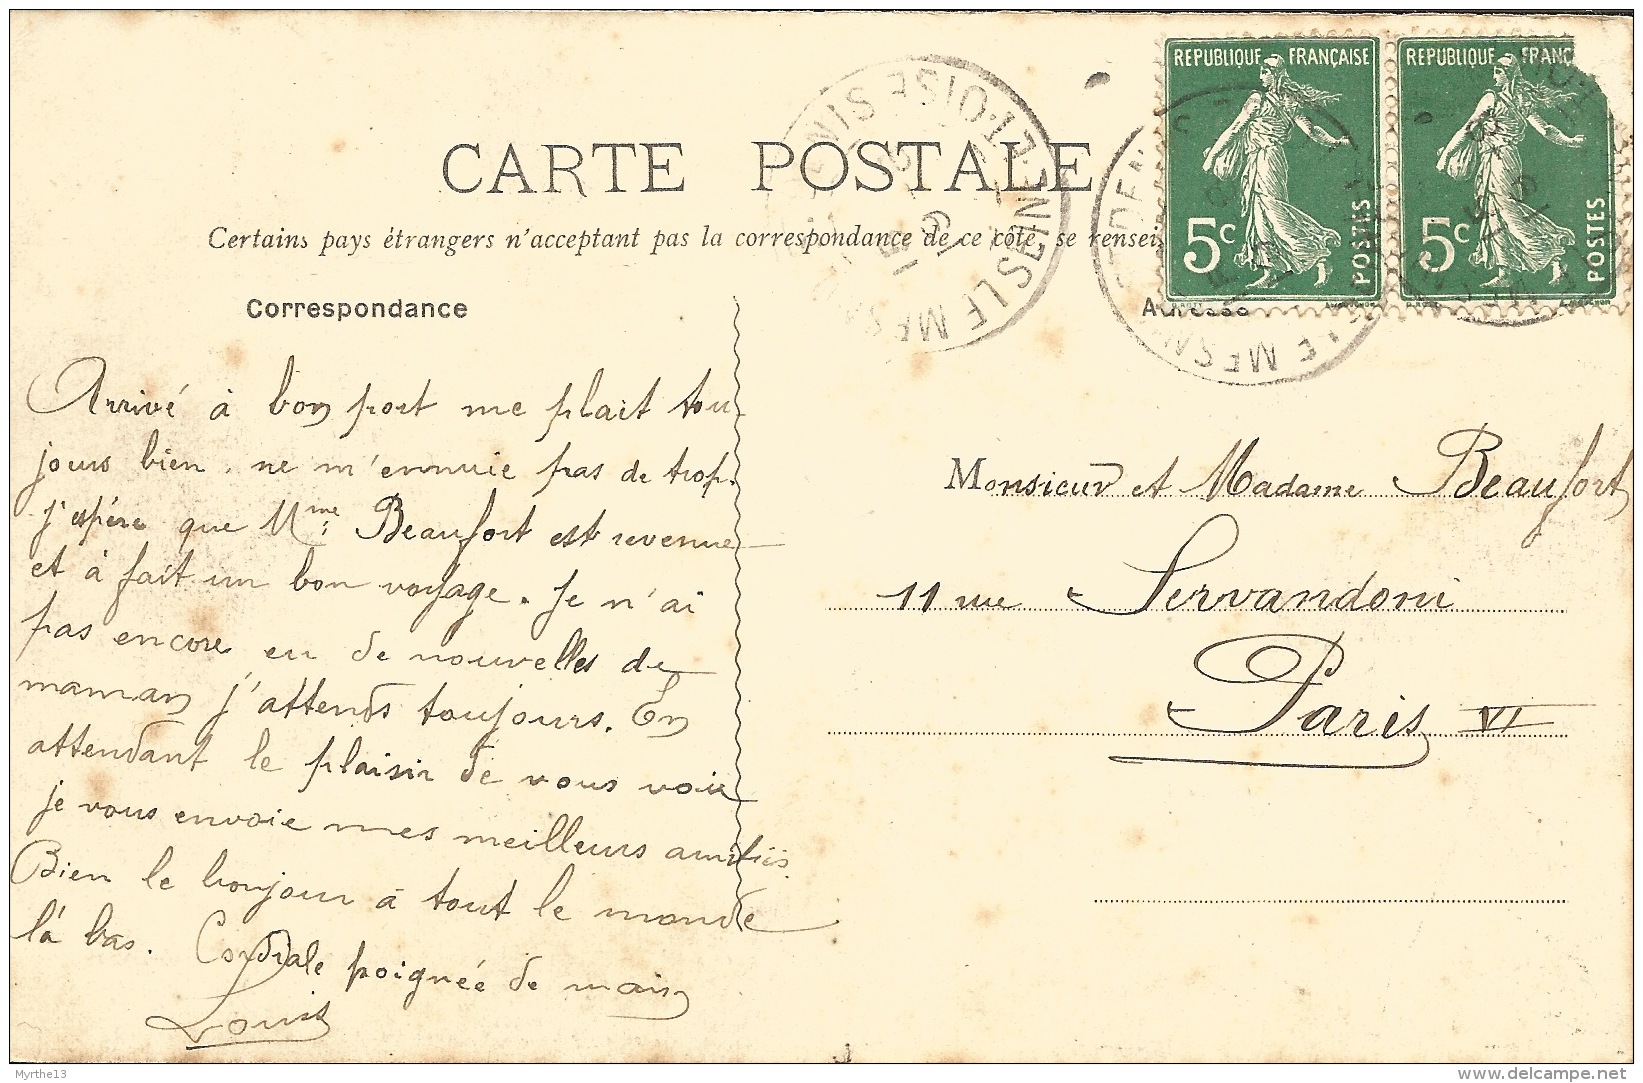 REPUBLIQUE FRANÇAISE
5c
POSTES
REPUBLIQUE FRANÇ
5c
POSTES
CARTE POSTALE
Certains pays étrangers n'acceptant pas la correspondance de ce côté, se rensei
Correspondance
Adresse
SEINE-ET-OISE
LE MESNIL
Arrivé à bon port me plait tou-
jours bien. ne m'ennuie pas de trop.
j'espère que Mme Beaufort est revenue
et à fait un bon voyage. Je n'ai
pas encore eu de nouvelles de
maman j'attends toujours. En
attendant le plaisir de vous voir
je vous envoie mes meilleurs amitiés.
Bien le bonjour à tout le monde
là bas. Cordiale poignée de main
Louis
Monsieur et Madame Beaufort
11 rue Servandoni
Paris VI
Myrthe13
www.delcampe.net